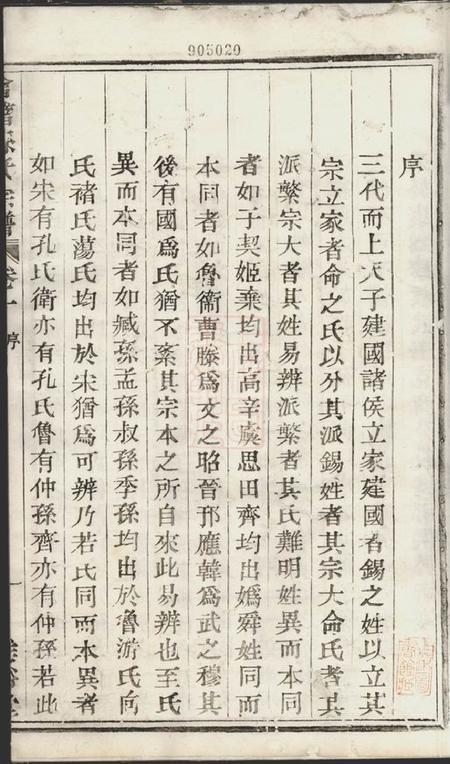 905029
序
三代而上天子建國諸侯立家建國者錫之姓以立其
宗立家者命之氏以分其派錫姓者其宗大命氏者其
派繁宗大者其姓易辨派繁者其氏難明姓異而本同
者如子契姬棄均出高辛虞思田齊均出媯舜姓同而
本同者如魯衞曹滕爲文之昭晉邘應韓爲武之穆其
後有國爲氏猶不紊其宗本之所自來此易辨也至氏
異而本同者如臧孫孟孫叔孫季孫均出於魯游氏向
氏褚氏蕩氏均出於宋猶爲可辨乃若氏同而本異者
如宋有孔氏衞亦有孔氏魯有仲孫齊亦有仲孫若此
氏宗譜
卷一
序
一